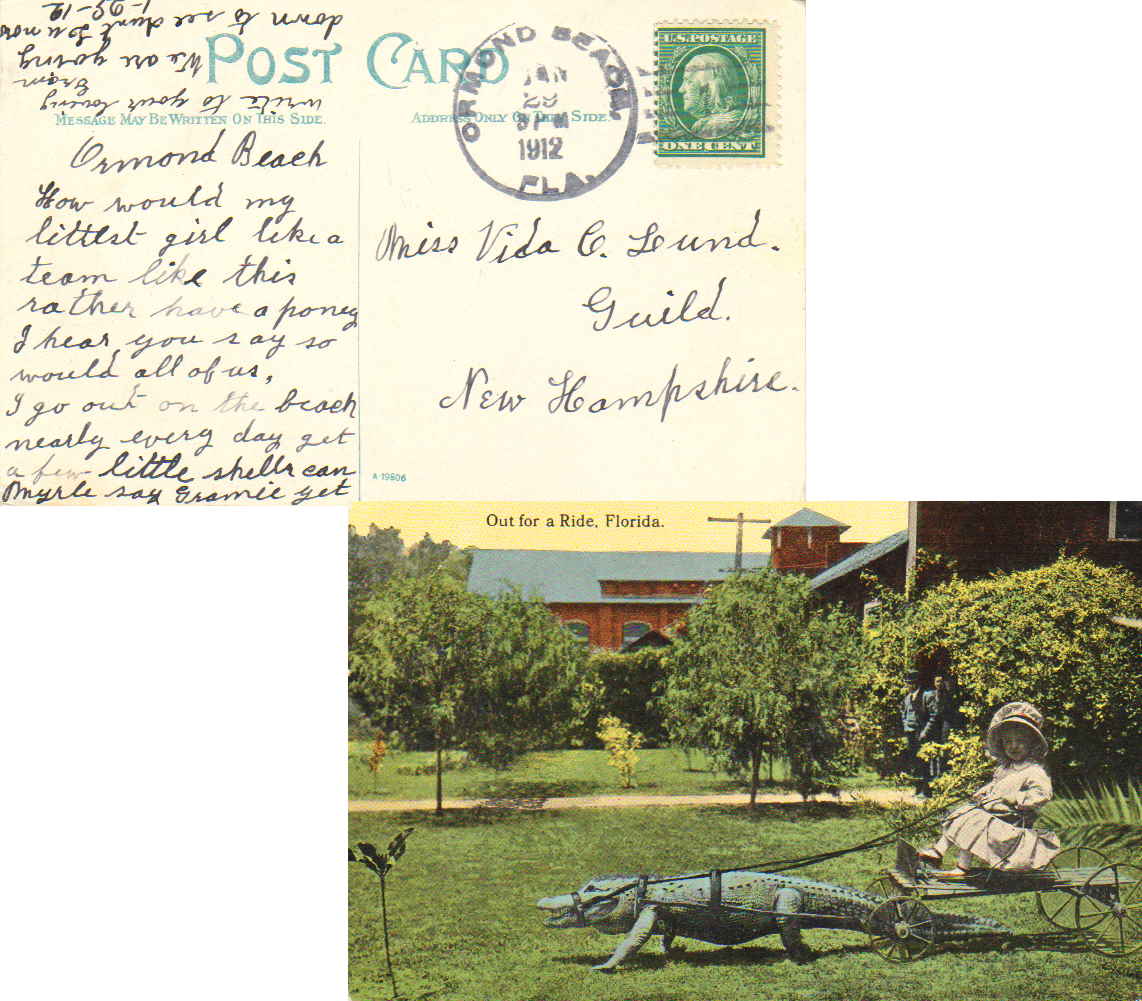 1-29-12
down to see Aunt
We are going
From
write to your loving
POST CARD
MESSAGE MAY BE WRITTEN ON THIS SIDE.
ADDRESS ONLY ON THIS SIDE.
ORMOND BEACH,
JAN
29
3 PM
1912
FLA.
U.S. POSTAGE
ONE CENT
Ormond Beach
How would my
littlest girl like a
team like this
rather have a poney
I hear you say so
would all of us,
I go out on the beach
nearly every day get
a few little shells can
Myrle say Gramie yet
Miss Vida C. Lund.
Guild.
New Hampshire.
A-19806
Out for a Ride, Florida.